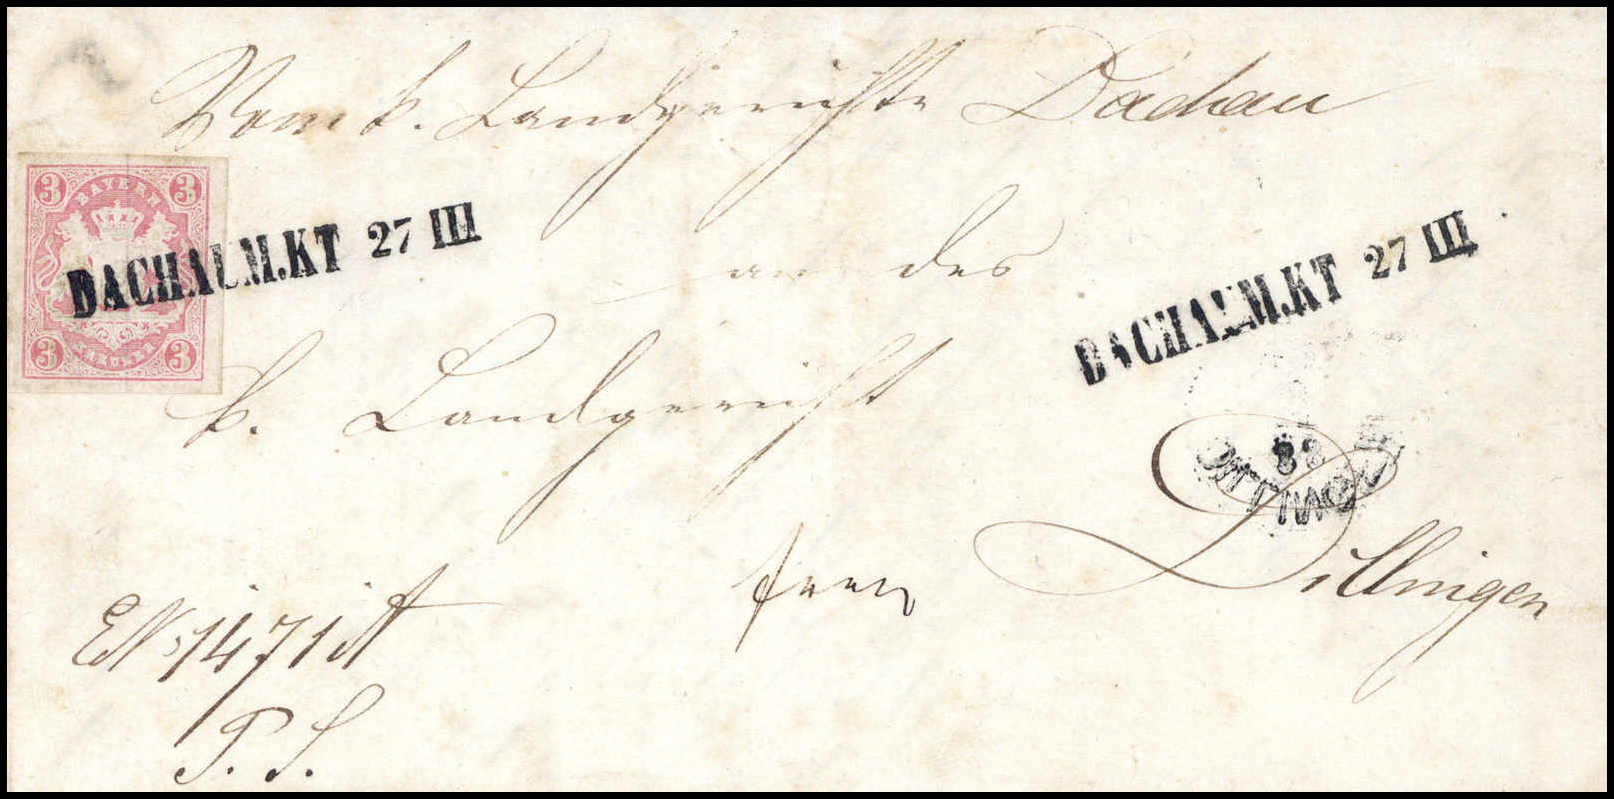 Vom k. Landgerichte Dachau
3 BAYERN 3
DACHAU M.KT 27 III
3 KREUZER 3
an das
DACHAU M.KT 27 III
k. Landgericht
DILLINGEN
Dillingen
franco
E.N. 1471
P. S.